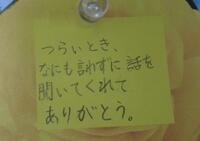 つらいとき、
なにも言わずに話を
聞いてくれて
ありがとう。